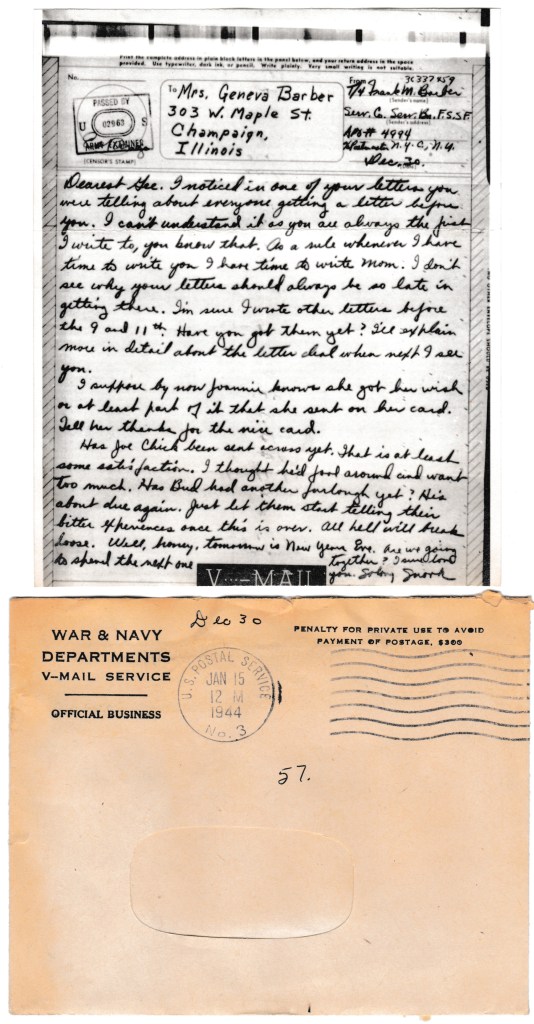 Print the complete address in plain block letters in the panel below, and your return address in the space
provided. Use typewriter, dark ink, or pencil. Write plainly. Very small writing is not suitable.
No.
PASSED BY
U S
02963
ARMY EXAMINER
(CENSOR'S STAMP)
To Mrs. Geneva Barber
303 W. Maple St.
Champaign,
Illinois
From 36337859
T/4 Frank M. Barber
(Sender's name)
Serv. Co. Serv. Bn. F.S.S.F.
(Sender's address)
APO# 4994
% Postmaster N.Y.C., N.Y.
Dec. 30.
Dearest Gee. I noticed in one of your letters you
were telling about everyone getting a letter before
you. I can't understand it as you are always the first
I write to, you know that. As a rule whenever I have
time to write you I have time to write Mom. I don't
see why your letters should always be so late in
getting there. I'm sure I wrote other letters before
the 9 and 11th. Have you got them yet? I'll explain
more in detail about the letter deal when next I see
you.
I suppose by now Joannie knows she got her wish
or at least part of it that she sent on her card.
Tell her thanks for the nice card.
Has Joe Chick been sent across yet. That is at least
some satisfaction. I thought he'd fool around and want
too much. Has Bud had another furlough yet? He's
about due again. Just let them start telling their
bitter experiences once this is over. All hell will break
loose. Well, honey, tomorrow is New Years Eve. Are we going
to spend the next one together? I sure love
you.
V···–MAIL
WAR & NAVY
DEPARTMENTS
V–MAIL SERVICE
OFFICIAL BUSINESS
Dec 30
U.S. POSTAL SERVICE
JAN 15
12 M
1944
No. 3
PENALTY FOR PRIVATE USE TO AVOID
PAYMENT OF POSTAGE, $300
57.